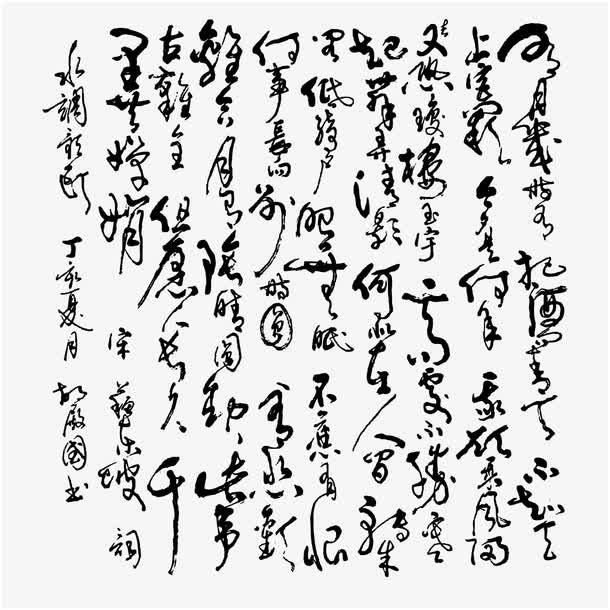 明月幾時有把酒問青天不知天
上宮闕今夕是何年我欲乘風歸
去又恐瓊樓玉宇高處不勝寒
起舞弄清影何似在人間轉朱
閣低綺戶照無眠不應有恨
何事長向別時圓人有悲歡
離合月有陰晴圓缺此事
古難全但願人長久千
里共嬋娟 宋 蘇東坡 詞
水調歌頭 丁亥夏月 胡國书